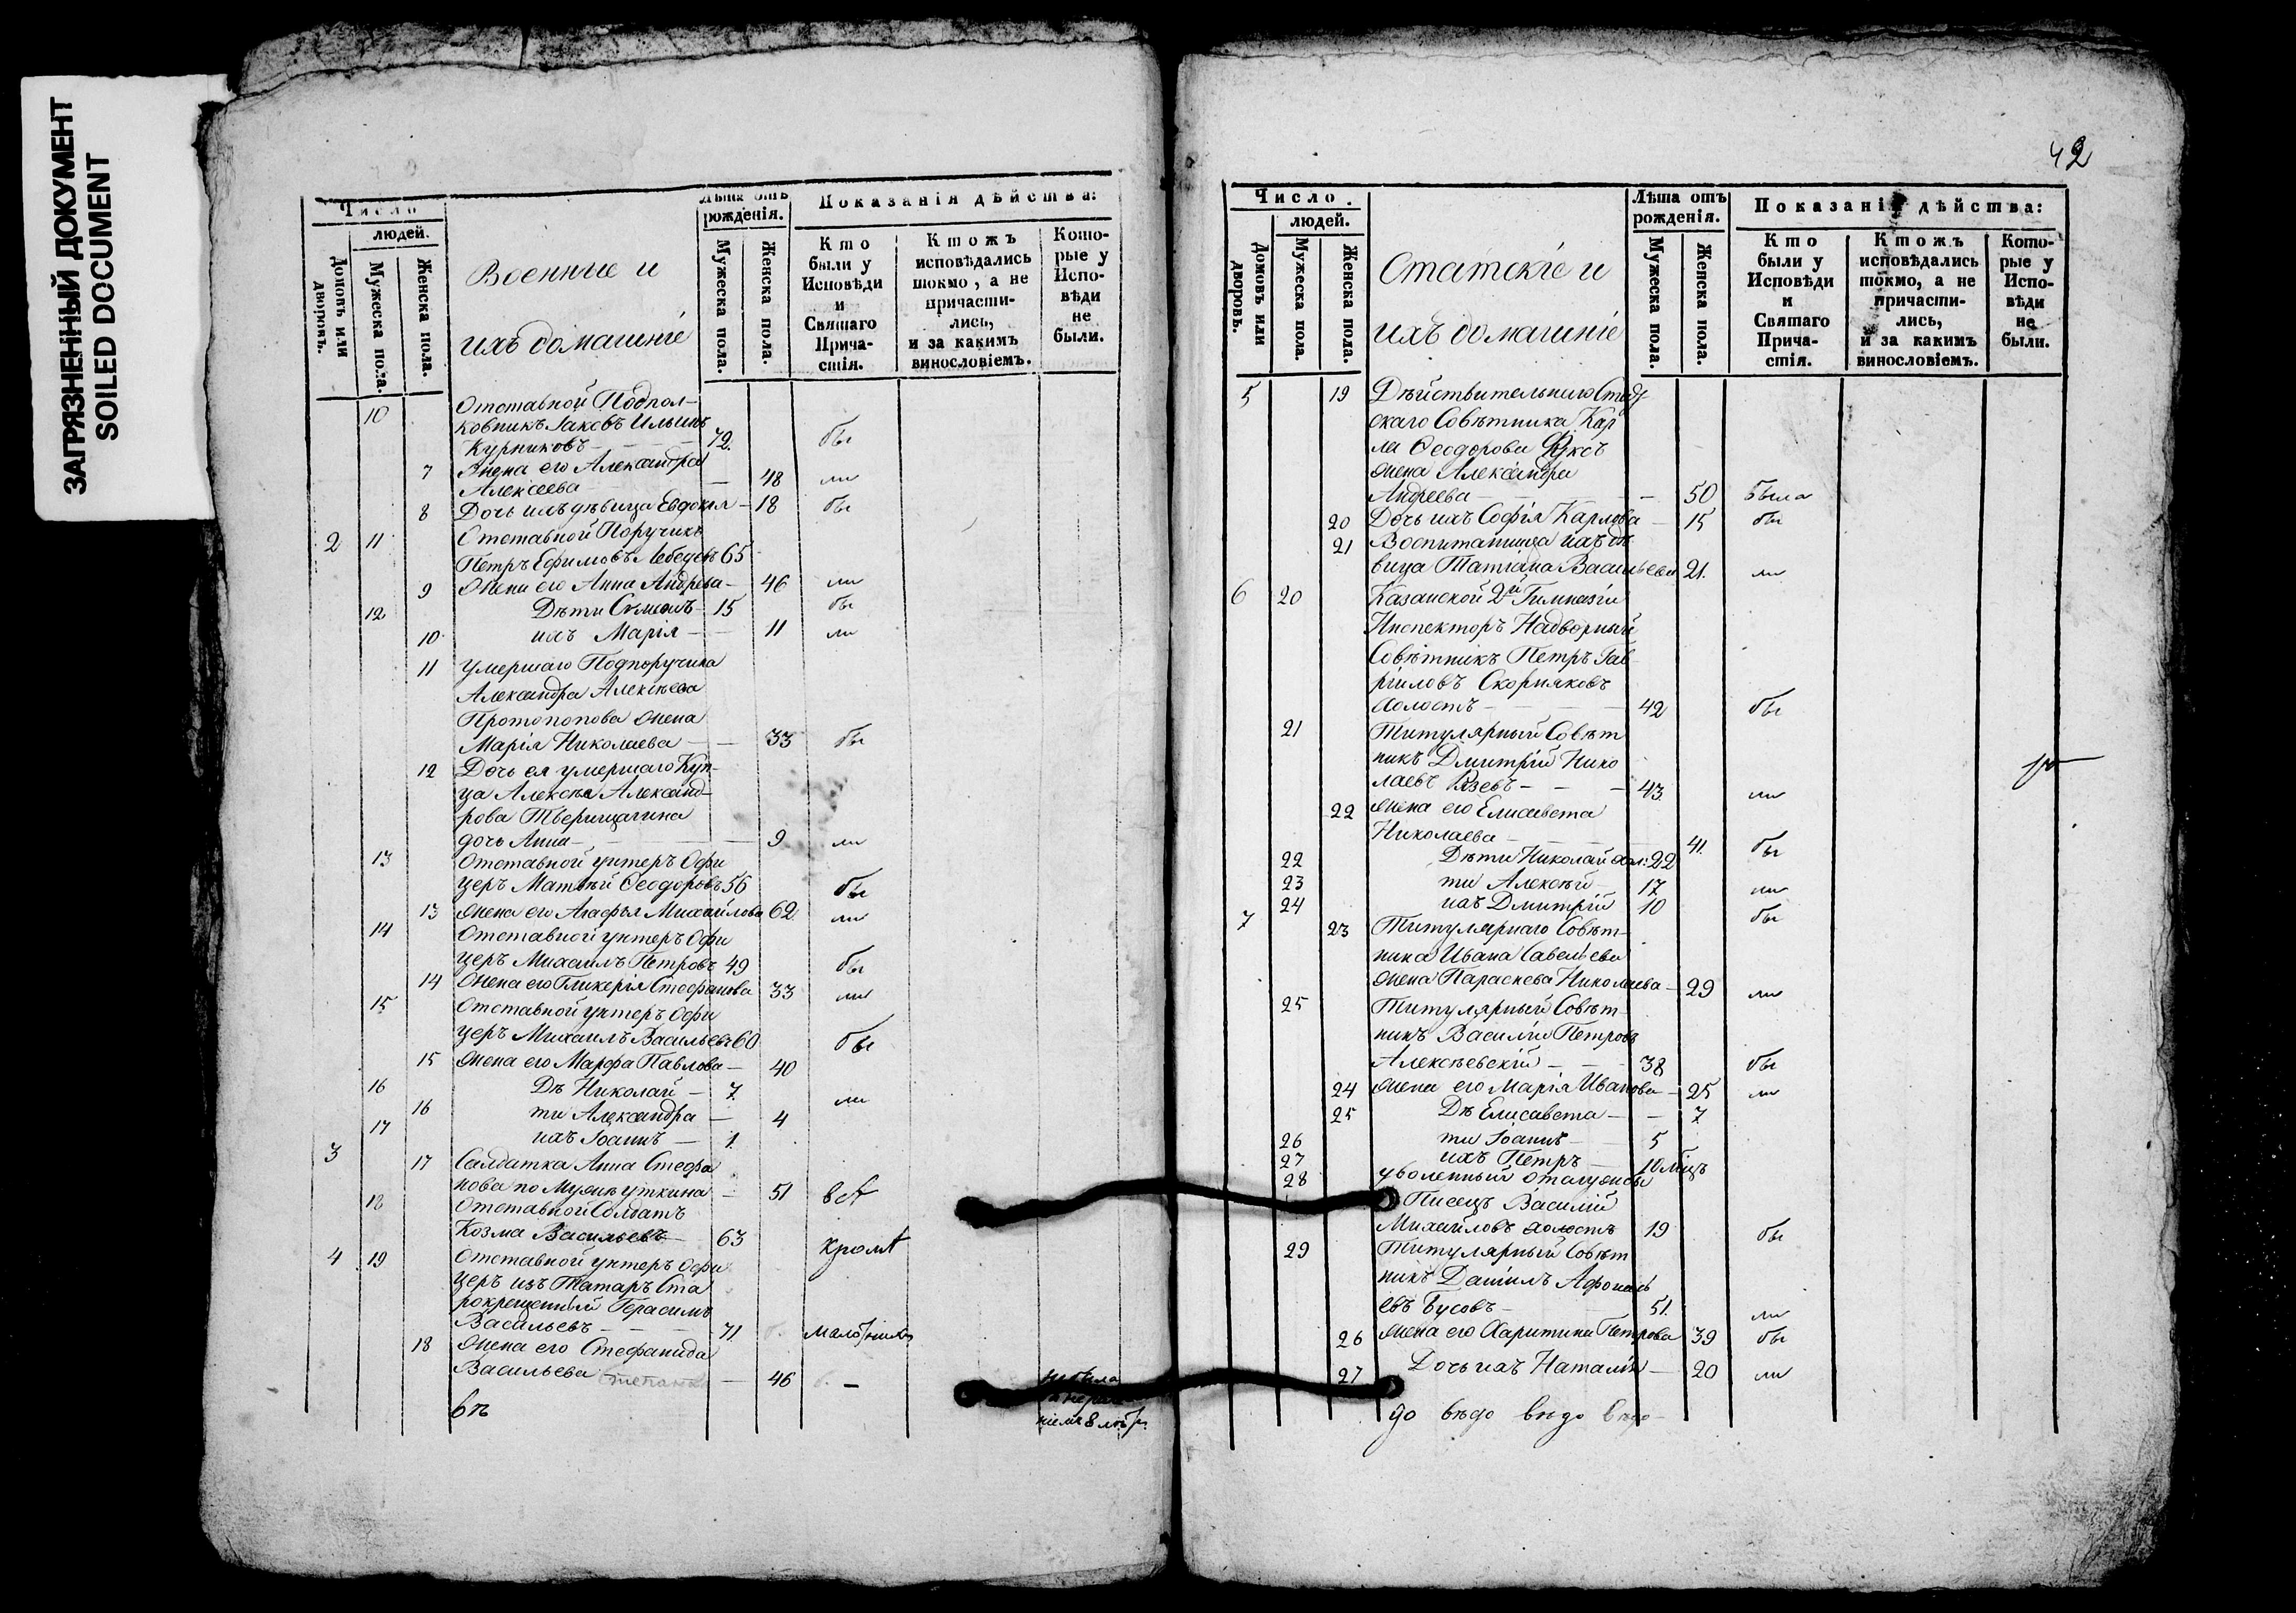 ЗАГРЯЗНЕННЫЙ ДОКУМЕНТ
SOILED DOCUMENT
Число
людей.
Домовъ или дворовъ.
Мужеска пола.
Женска пола.
Военные и
ихъ домашніе
Лѣта отъ рожденія.
Мужеска пола.
Женска пола.
Показанія дѣйства:
Кто были у Исповѣди и Святаго Причастія.
Ктожъ исповѣдались токмо, а не причастились, и за какимъ винословіемъ.
Которые у Исповѣди не были.
10 Отставной Подпол-
ковникъ Іаковъ Ильинъ
Курниковъ 72. бы
7 Жена его Александра
Алексеева 48 ли
8 Дочь ихъ дѣвица Евдокія 18 бы
2 11 Отставной Поручикъ
Петръ Ефимовъ Лебедевъ 65
9 Жена его Анна Андреева 46 ли
12 Дѣти 15 бы
10 ихъ Марія 11 ли
11 умершаго Подпоручика
Александра Алексѣева
Протопопова жена
Марія Николаева 33 бы
12 Дочь ея умершаго Куп-
ца Алексѣя Александ-
рова Тверищагина
дочь Анна 9 ли
13 Отставной унтеръ Офи
церъ Матвѣй Ѳеодоровъ 56 бы
13 Жена его Агафья Михайлова 62 ли
14 Отставной унтеръ Офи
церъ Михаилъ Петровъ 49 бы
14 Жена его Гликерія Стефанова 33 ли
15 Отставной унтеръ Офи
церъ Михаилъ Васильевъ 60 бы
15 Жена его Марфа Павлова 40
16 Дѣ Николай 7 ли
16 ти Александра 4
17 ихъ Іоаннъ 1
3 17 Салдатка Анна Стефа
нова по мужѣ уткина 51 всѣ
18 Отставной Солдатъ
Козма Васильевъ 63 кромѣ
4 19 Отставной унтеръ Офи
церъ изъ Татаръ Ста
рокрещеный Герасимъ
Васильевъ 71
18 Жена его Стефанида
Васильева 46
вѣ
42
Число.
людей.
Домовъ или дворовъ.
Мужеска пола.
Женска пола.
Статскіе и
ихъ домашніе
Лѣта отъ рожденія.
Мужеска пола.
Женска пола.
Показанія дѣйства:
Кто были у Исповѣди и Святаго Причастія.
Ктожъ исповѣдались токмо, а не причастились, и за какимъ винословіемъ.
Которые у Исповѣди не были.
5 19 Дѣйствительнаго Стат
скаго Совѣтника Кар
ла Ѳеодорова
жена Александра
Андреева 50 была
20 Дочь ихъ Софія Карлова 15 бы
21 Воспитанница ихъ дѣ
вица Татіана Васильева 21. ли
6 20 Казанской 2й Гимназіи
Инспекторъ Надворный
Совѣтникъ Петръ Гав
риловъ Скорняковъ
холостъ 42 бы
21 Титулярный Совѣт
никъ Дмитрій Нико
лаевъ 43. ли
22 жена его Елисавета
Николаева 41. бы
22 Дѣти Николай хол: 22
23 ти Алексѣй 17 ли
24 ихъ Дмитрій 10 бы
7 23 Титулярнаго Совѣт-
ника Ивана Савельева
жена Параскева Николаева 29 ли
25 Титулярный Совѣт-
никъ Василій Петровъ
Алексѣевскій 38 бы
24 жена его Марія Иванова 25 ли
25 Дѣ Елисавета 7
26 ти Іоаннъ 5
27 ихъ Петръ 10 мѣцъ
28 уволенный отъ службы
Писецъ Василій
Михайловъ холостъ 19 бы
29 Титулярный Совѣт
никъ Даніилъ Афонась
евъ Бусовъ 51. ли
26 жена его Харитина Петрова 39 бы
27 Дочь ихъ Наталія 20 ли
до вѣдо вѣдо вѣдо